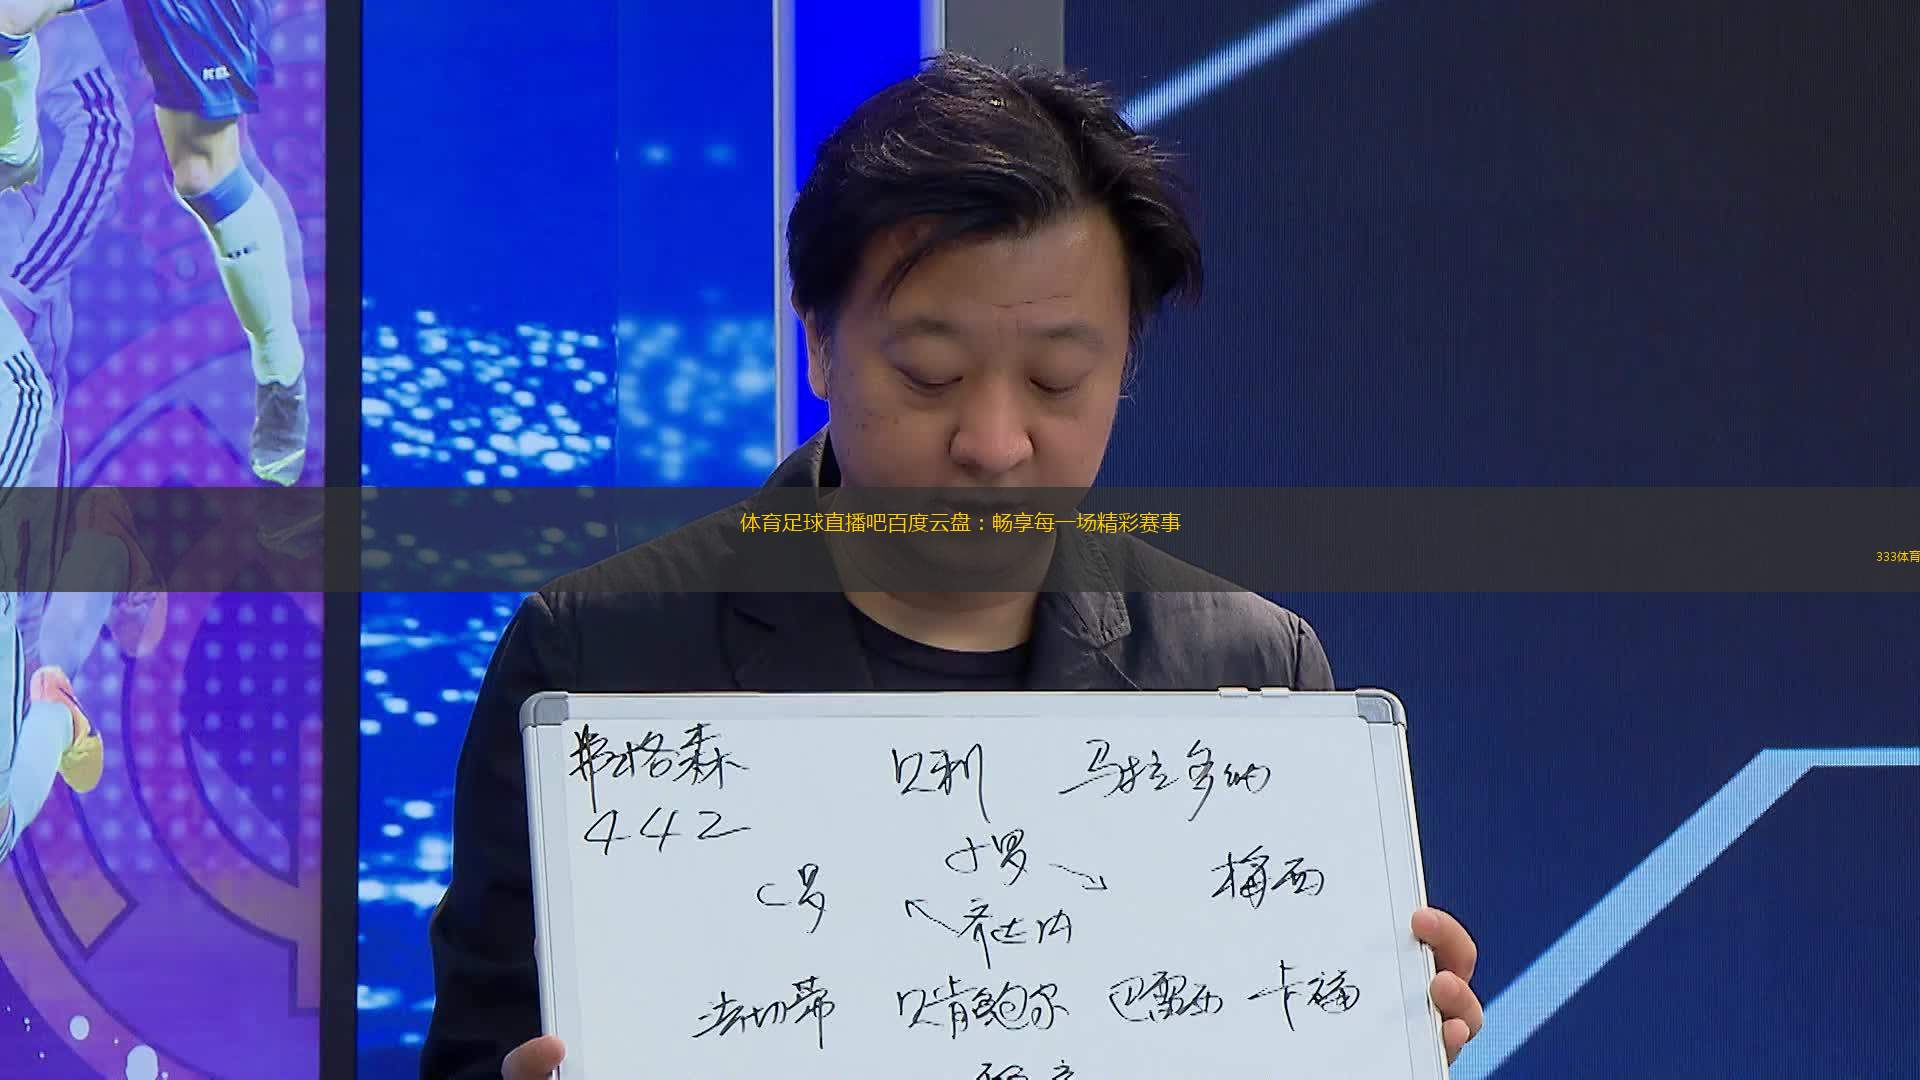 体育足球直播吧百度云盘：畅享每一场精彩赛事
333体育
弗格森 贝利 马拉多纳
442
小罗
C罗 梅西
齐达内
法切蒂 贝肯鲍尔 巴雷西 卡福